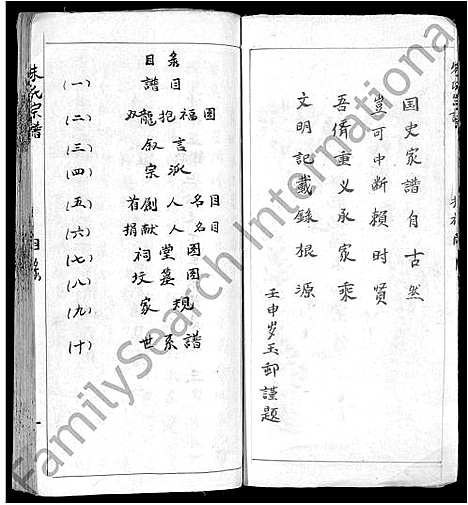 国史家譜自古然
豈可中断賴时贤
吾侪重义承家乘
文明記載錄根源
壬申岁玉卸謹题
目录
(一) 譜目
(二) 双龍抱福图
(三) 叙言
(四) 宗派
(五) 首創人名目
(六) 捐献人名目
(七) 祠堂图
(八) 坟墓图
(九) 家规
(十) 世系譜
朱氏宗譜
目錄
FamilySearch International